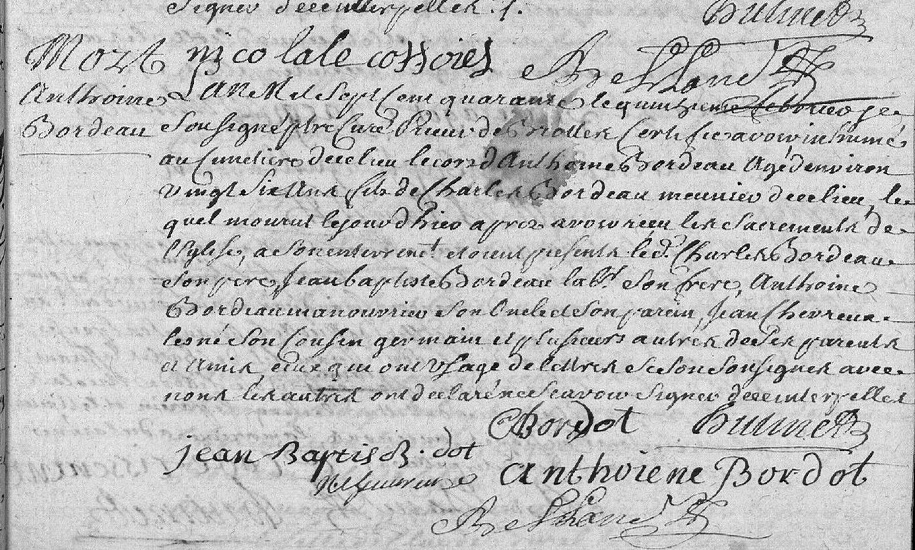 Signer de ce interpellés ./.
Mort nicolale cossoies
Anthoine L'An Mil Sept Cent quarante le quinzieme fevrier je
Bordeau Soussigné ptre Curé Prieur de certifie avoir inhumé
au Cimetiere de ce lieu le corps d'Anthoine Bordeau Agé d'environ
vingt Six Ans fils de Charles Bordeau meunier de ce lieu, le
quel mourut le jour d'hier apres avoir receu les Sacrements de
l'Eglise, a Son enterremt. etoient presents le d. Charles Bordeau
Son pere, Jean baptiste Bordeau labr. Son frere, Anthoine
Bordeau manouvrier Son Oncle et Son parein, Jean
Son Cousin germain et plusieurs autres de Ses parents
et Amis, ceux qui ont Usage de lettres Se Sont Soussignés avec
nous les autres ont declaré ne Scavoir Signer de ce interpellés
CBordot
jean Baptis B. dot
anthoiene Bordot